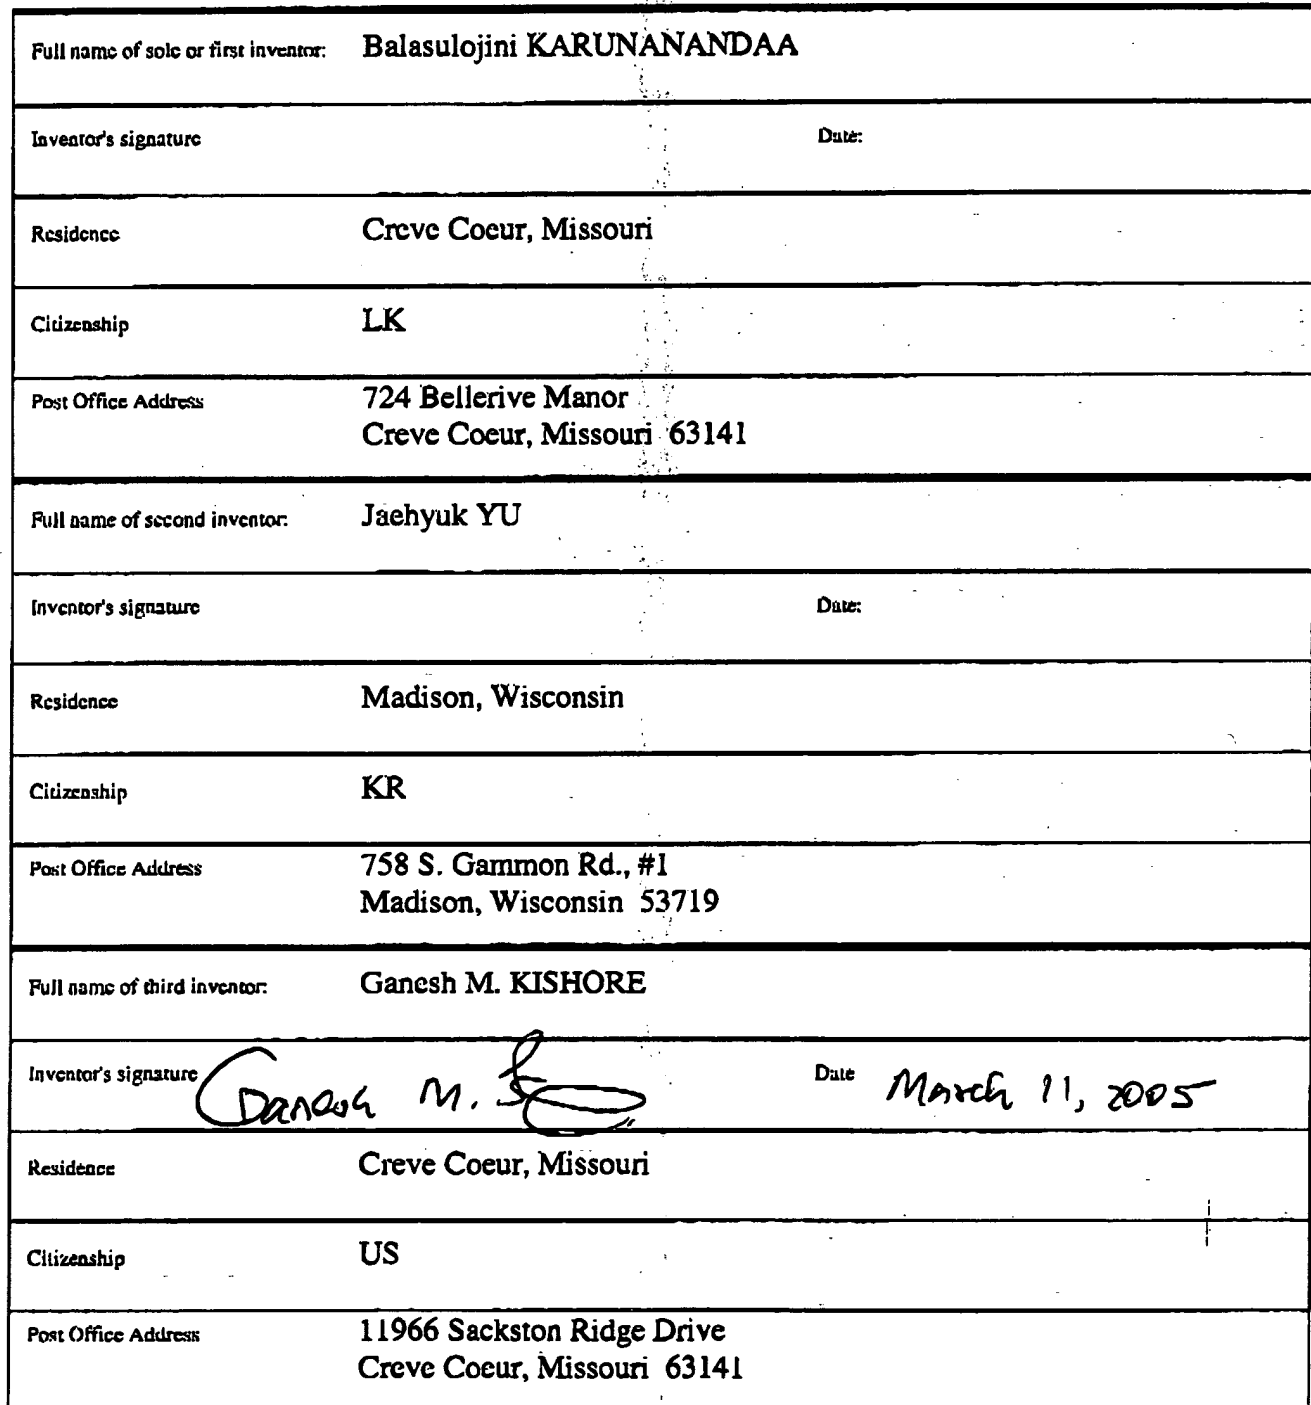 Full name of sole or first inventor: Balasulojini KARUNANANDAA
Inventor's signature Date:
Residence Creve Coeur, Missouri
Citizenship LK
Post Office Address 724 Bellerive Manor
Creve Coeur, Missouri 63141
Full name of second inventor: Jaehyuk YU
Inventor's signature Date:
Residence Madison, Wisconsin
Citizenship KR
Post Office Address 758 S. Gammon Rd., #1
Madison, Wisconsin 53719
Full name of third inventor: Ganesh M. KISHORE
Inventor's signature Ganesh M. Date March 11, 2005
Residence Creve Coeur, Missouri
Citizenship US
Post Office Address 11966 Sackston Ridge Drive
Creve Coeur, Missouri 63141